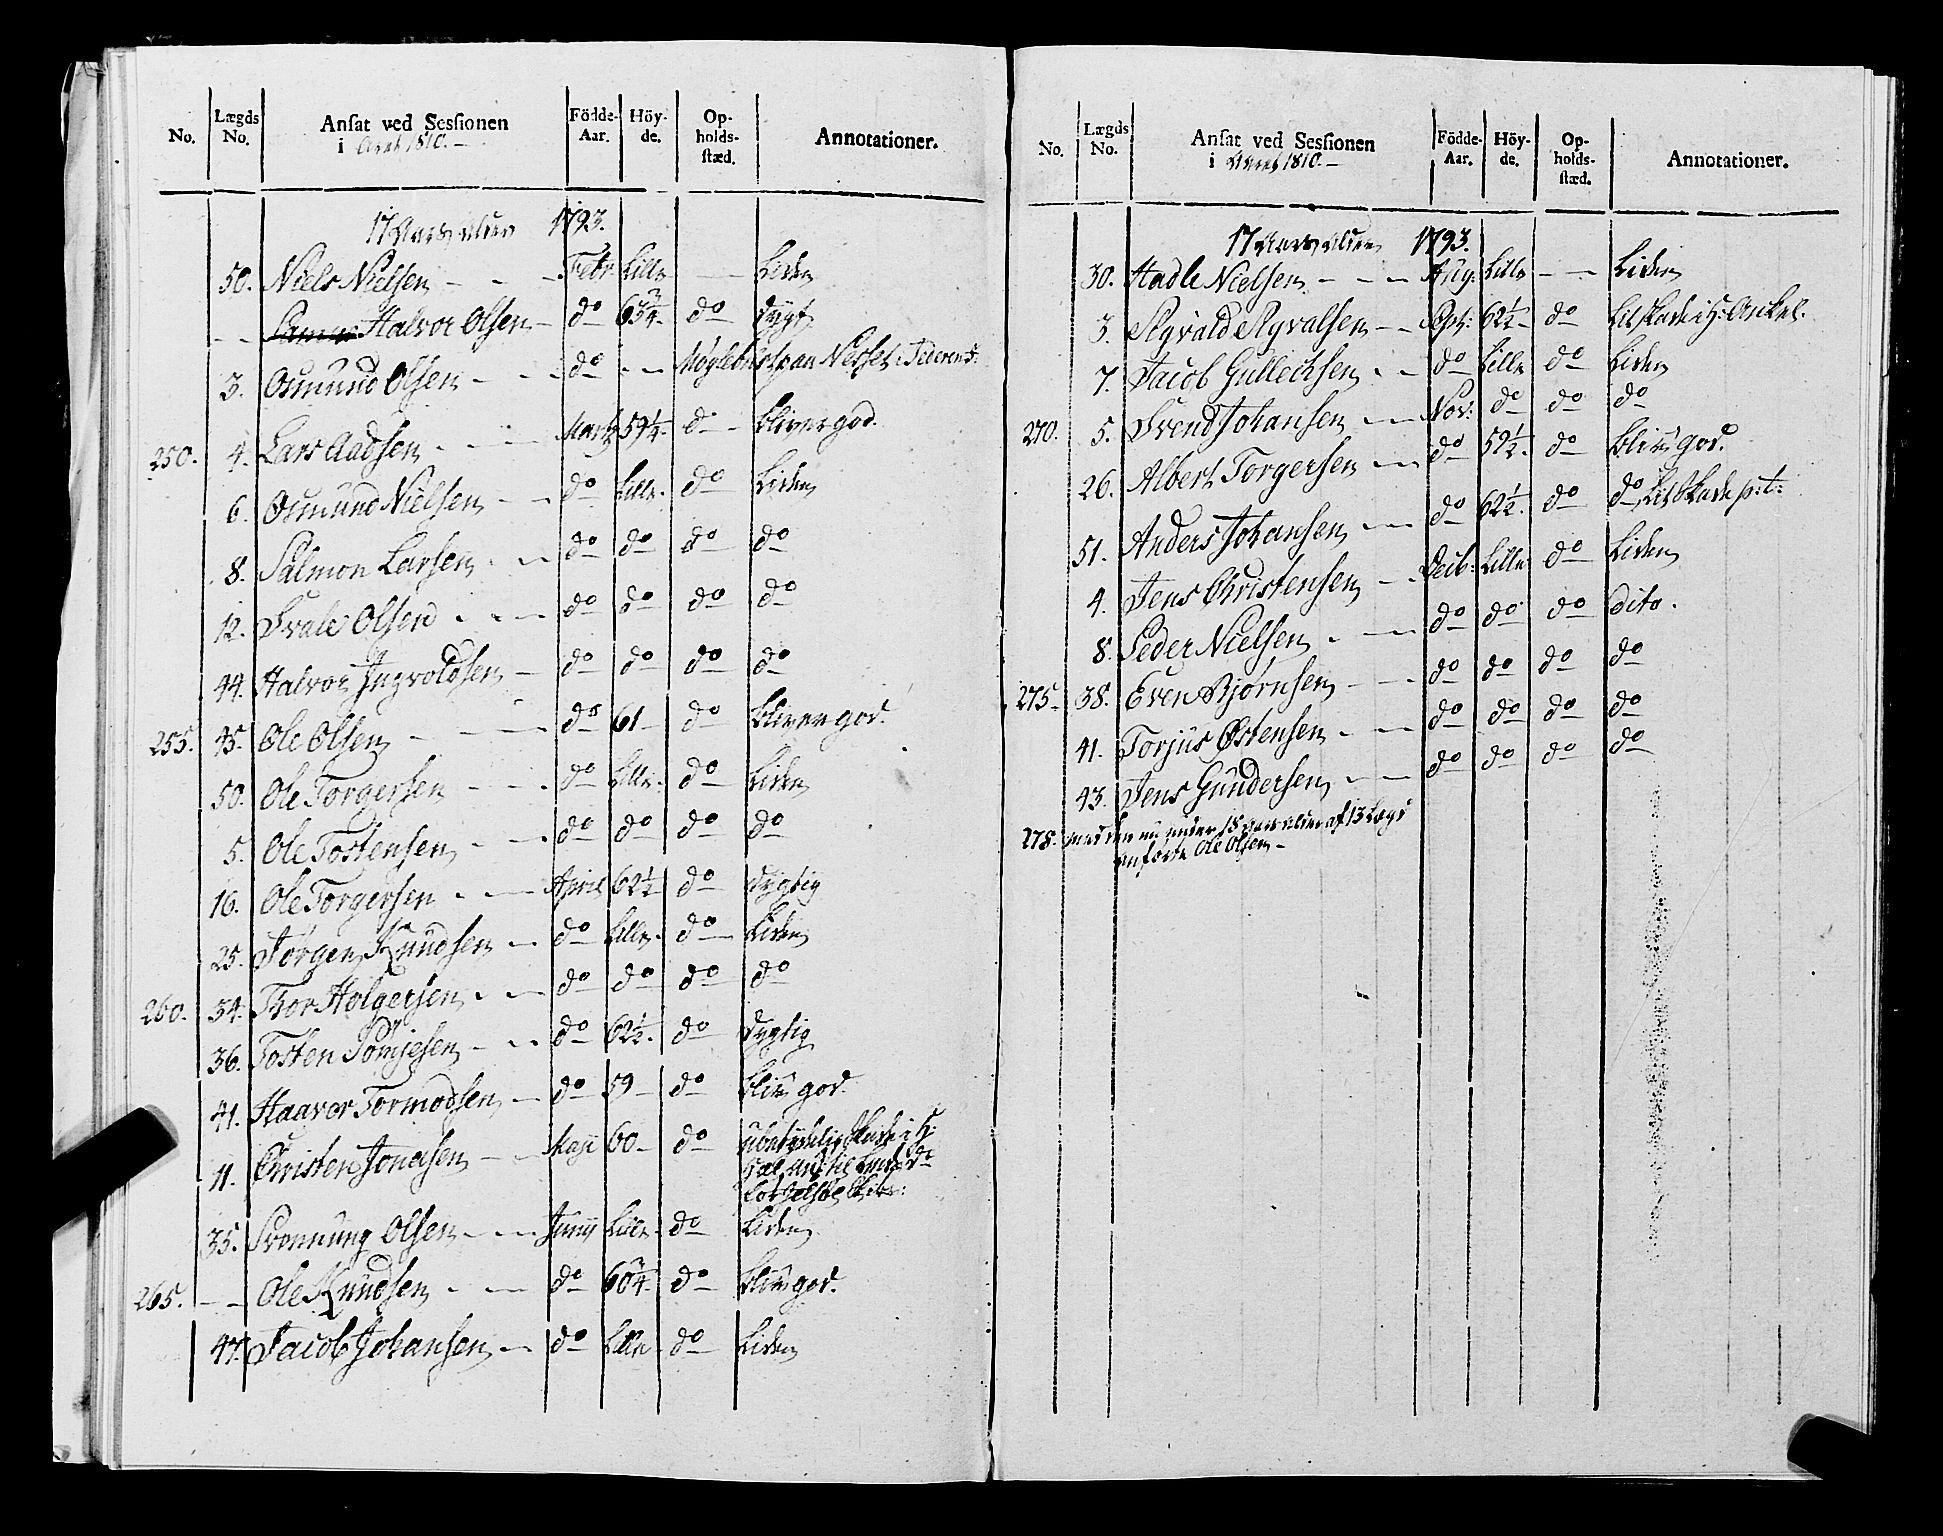 No. Lægds No. Ansat ved Sessionen i Aaret 1810. Födde-Aar. Höy-de. Op-holds-stæd. Annotationer.
17 Aars Alder 1793.
50. Niels Nielsen Febr. Lille Liden
Halvor Olsen do 63 3/4 do dygt
3. Osmund Olsen do
250. 4. Lars Aadsen Marti 59 1/4 do bliver god.
6. Osmund Nielsen do Lille do Liden
8. Salmon Larsen do do do do
12. Svale Olsen do do do do
44. Halvor Ingvoldsen do do do do
255. 45. Ole Olsen do 61 do bliver god.
50. Ole Torgersen do Lille do Liden
5. Ole Tostensen do do do do
16. Ole Torgersen April 62 1/2 do dygtig
25. Jørgen Knudsen do Lille do Liden
260. 34. Thor Holgersen do do do do
36. Tosten Romjesen do 62 1/2 do dygtig
41. Haavor Tormodsen do 59 do bliv god.
11. Christen Jonasen Maji 60 do ubetydelig Skade i
35. Svennung Olsen Junij Lille do Liden
265. Ole Knudsen do 60 1/4 do bliv god.
47. Jacob Johansen do Lille do Liden
No. Lægds No. Ansat ved Sessionen i Aaret 1810. Födde-Aar. Höy-de. Op-holds-stæd. Annotationer.
17 Aars Alder 1793.
30. Hadle Nielsen Aug: Lille Liden
3. Sigvald Sigvalsen Sept: 62 1/2 do lit skade i H: Ankel.
7. Jacob Gullechsen do Lille do Liden
270. 5. Svend Johansen Nov: do do do
26. Albert Torgersen do 59 1/2 do bliv god.
51. Anders Johansen do 62 1/2 do do, lit Skade p: t:
4. Jens Christensen Decb: Lille do Liden
8. Peder Nielsen do do do dito.
275. 38. Even Bjørnsen do do do do
41. Torjus Østensen do do do do
43. Jens Gundersen do do do do
278. med den nu under 18 Aars Alder af 13 Lægd
anførte Ole Olsen